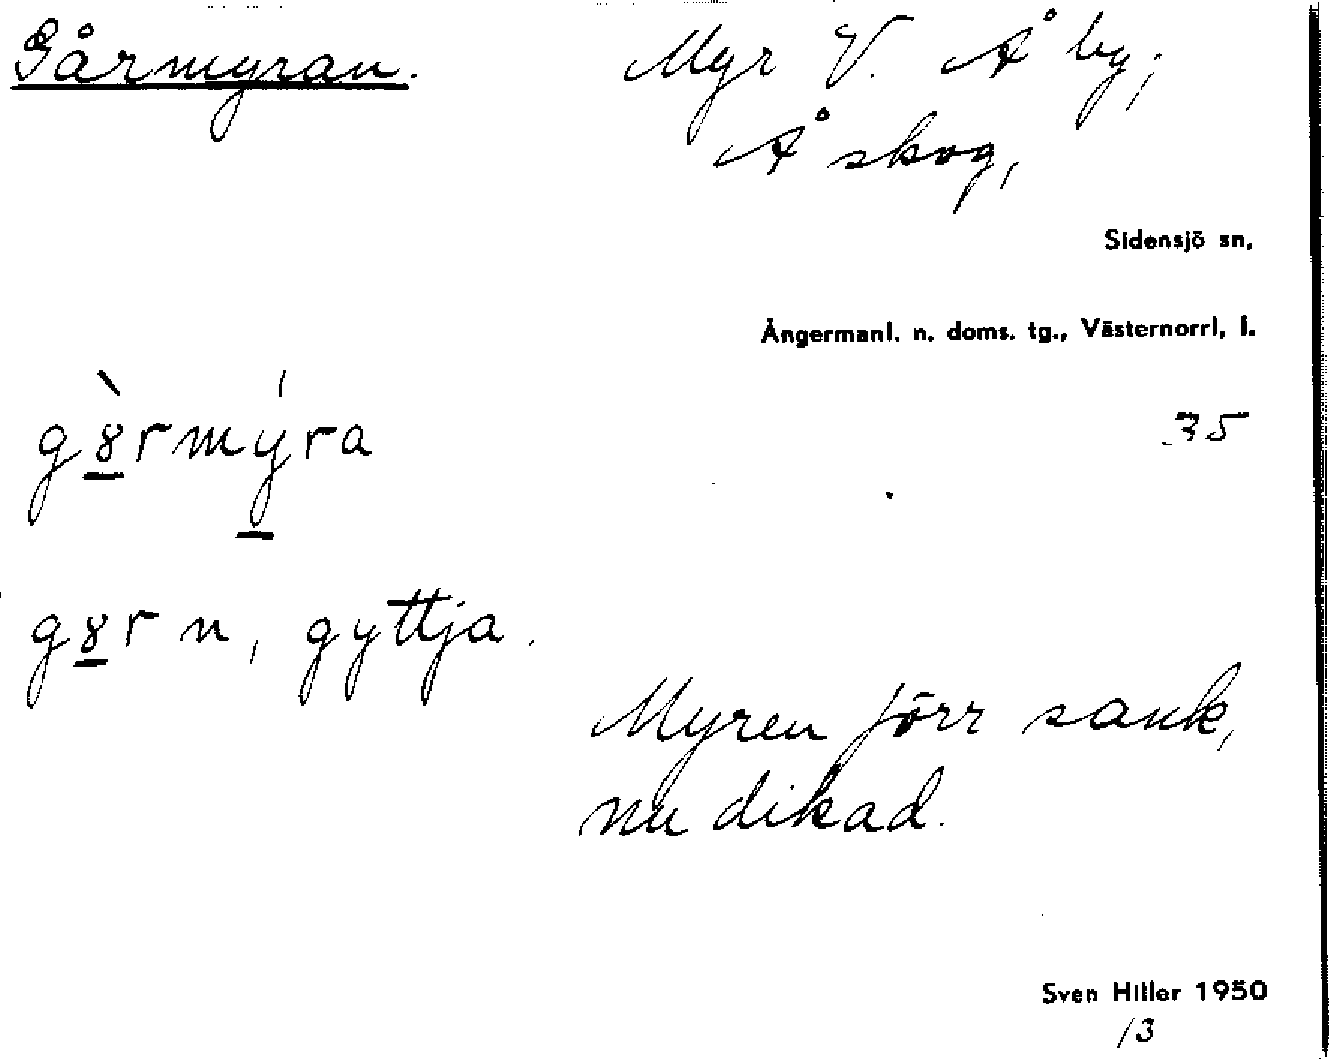 Gårmyran.
Myr V. Å by;
Å skog,
Sidensjö sn,
Ångermanl. n. doms. tg., Västernorrl. l.
g8̀rmýra
35
g8r n, gyttja.
Myren förr sank,
nu dikad.
Sven Hiller 1950
13